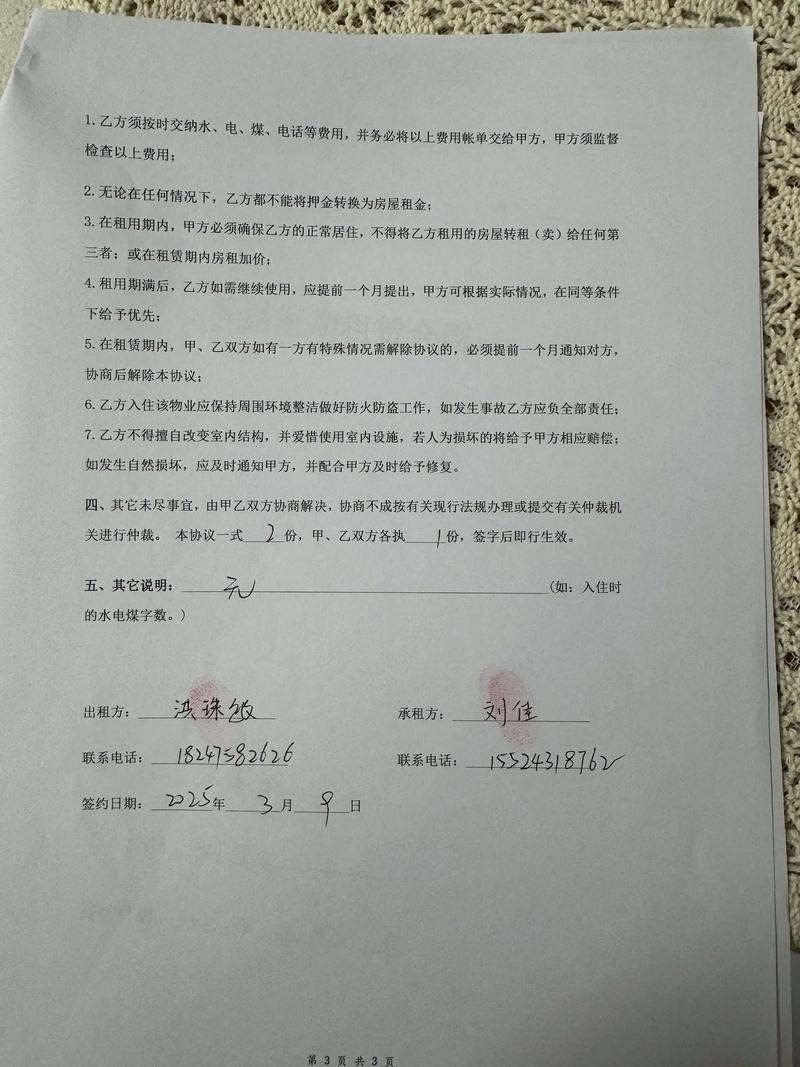 1. 乙方须按时交纳水、电、煤、电话等费用，并务必将以上费用帐单交给甲方，甲方须监督
检查以上费用；
2. 无论在任何情况下，乙方都不能将押金转换为房屋租金；
3. 在租用期内，甲方必须确保乙方的正常居住，不得将乙方租用的房屋转租（卖）给任何第
三者；或在租赁期内房租加价；
4. 租用期满后，乙方如需继续使用，应提前一个月提出，甲方可根据实际情况，在同等条件
下给予优先；
5. 在租赁期内，甲、乙双方如有一方有特殊情况需解除协议的，必须提前一个月通知对方，
协商后解除本协议；
6. 乙方入住该物业应保持周围环境整洁做好防火防盗工作，如发生事故乙方应负全部责任；
7. 乙方不得擅自改变室内结构，并爱惜使用室内设施，若人为损坏的将给予甲方相应赔偿；
如发生自然损坏，应及时通知甲方，并配合甲方及时给予修复。
四、其它未尽事宜，由甲乙双方协商解决，协商不成按有关现行法规办理或提交有关仲裁机
关进行仲裁。 本协议一式 2 份，甲、乙双方各执 1 份，签字后即行生效。
五、其它说明： 无 (如：入住时
的水电煤字数。)
出租方： 洪珠 承租方： 刘佳
联系电话： 18247582626 联系电话： 15524318762
签约日期： 2025 年 3 月 9 日
第 3 页 共 3 页